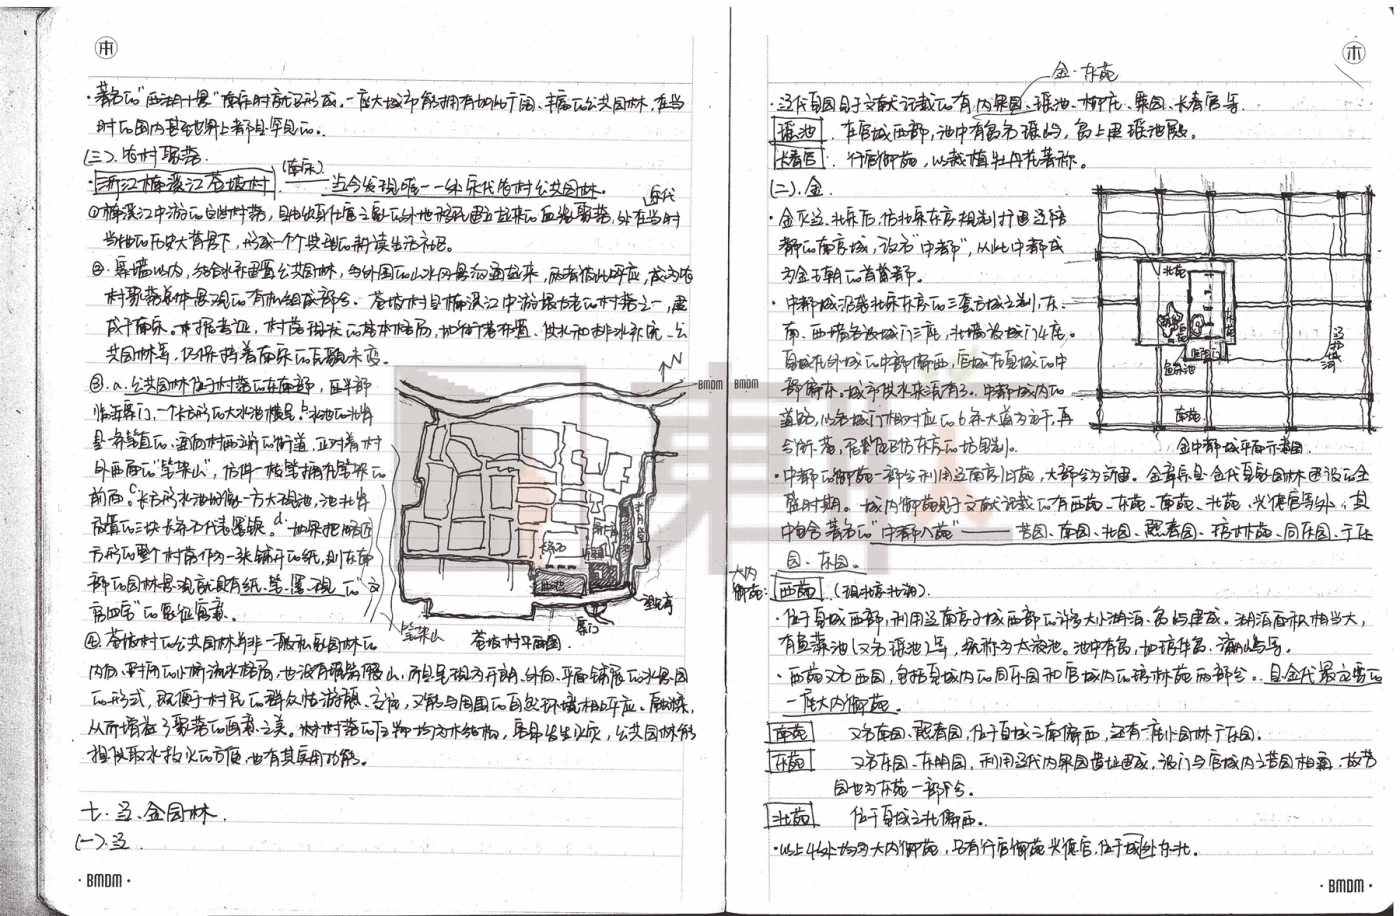 ·著名的"西湖十景"南宋时就已形成。一座大城市能拥有如此广园、丰富的公共园林，在当
时的国内甚至世界上都是罕见的。
(三).农村聚落.
·浙江楠溪江苍坡村 (南宋) —— 当今发现唯一一处宋代农村公共园林。
①楠溪江中游的自然村落，
当地的历史大背景下，形成一个个典型的耕读生活社区。
②.寨墙以内，结合水系布置公共园林，与外围的山水风景沟通起来，两者彼此呼应，成为农
村聚落总体景观的有机组成部分。苍坡村是楠溪江中游最古老的村落之一，建
成于南宋。据考证，村落现状的基本格局，如街巷布置、供水和排水系统、公
共园林等，仍保持着南宋的原貌未变。
③.a.公共园林位于村落的东南部，
临近寨门，一个长方形的大水池横呈。b水池的北岸
是一条笔直的、通向村西头的街道，正对着村
外西面的"笔架山"，仿佛一枝笔搁在笔架的
前面。c长方形水池仿佛一方大砚池，池北岸
放置的三块长条石代表墨锭。d如果把略近
方形的整个村落作为一张铺开的纸，则在南
部的园林景观就具有纸、笔、墨、砚的"文
房四宝"的象征寓意。
N
大街
西池
寨门
望兄亭
笔架山
苍坡村平面图.
④.苍坡村的公共园林并非一般私家园林的
内向、封闭的小桥流水格局，也没有堆筑假山，而且呈现为开朗、外向、平面铺展的水景园
的形式，既便于村民的群众性游憩、交往，又能与周围的自然环境相呼应、融糅，
从而增益了聚落的画意之美。村落的建筑均为木结构，容易发生火灾，公共园林能
提供取水救火的方便，也有其实用功能。
七.辽.金园林.
(一).辽
·BMDM·
金·东苑
·辽代园见于文献记载的有内果园、瑶池、柳庄、栗园、长春宫等.
瑶池. 在宫城西部，池中有岛名瑶屿，岛上建瑶池殿。
长春宫. 行宫御苑，以栽植牡丹花著称。
(二).金
·金灭辽、北宋后，仿北宋东京规制扩建辽陪
都的南京城，改名"中都"，从此中都成
为金王朝的首都.
·中都城沿袭北宋东京的三套方城之制，东、
南、西墙各设城门三座，北墙设城门4座。
皇城在外城的中部偏西，宫城在皇城的中
部偏东。城市供水来源有3。中都城内的
道路，以各城门相对应的6条大道为主干，再
北苑
东苑
鱼藻池
南苑
辽都城河
金中都城平面示意图.
·中都的御苑一部分利用辽南京旧苑，大部分为新建。金章宗是金代皇家园林建设的全
盛时期。城内御苑见于文献记载的有西苑、东苑、南苑、北苑、兴德宫等处，其
中包含著名的"中都八苑"—— 芳园、南园、北园、熙春园、琼林苑、同乐园、广乐
园、东园。
大内御苑: 西苑. (现北京北海).
·位于皇城西部，利用辽南京子城西部的许多大小湖泊、岛屿建成。湖泊面积相当大，
有鱼藻池(又名瑶池)等，统称为太液池。池中有岛，如琼华岛、瀛屿等。
·西苑又名西园，包括皇城内的同乐园和宫城内的琼林苑两部分。是金代最主要的
一座大内御苑。
南苑 又名南园、熙春园，位于皇城之南偏西，还有一座小园林广乐园。
东苑 又名东园、东明园，利用辽代内果园遗址建成，该门与宫城内之芳园相通，故芳
园也为东苑一部分。
北苑 位于皇城之北偏西。
·以上4处均为大内御苑，只有行宫御苑兴德宫，位于城外东北。
·BMDM·